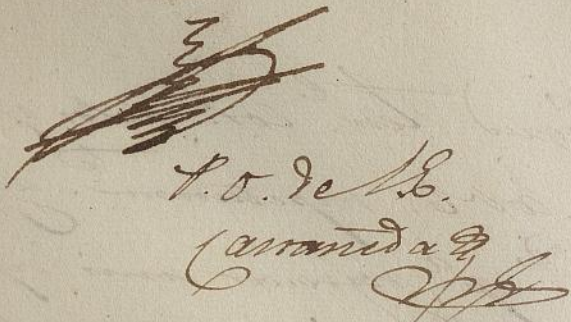 P. O. de S. E.
Castañeda